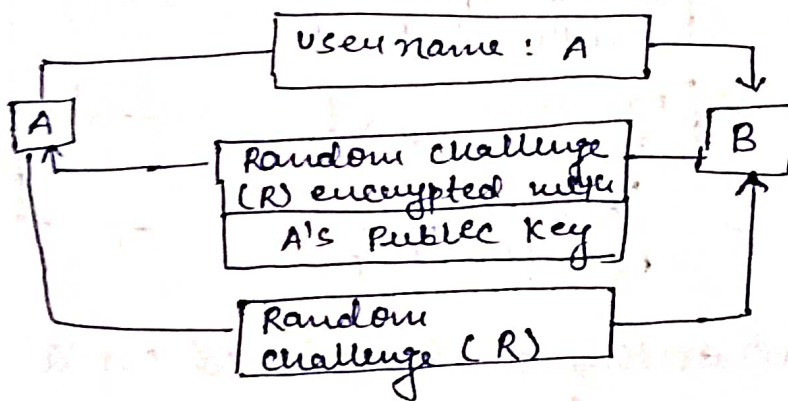 Username : A
A
B
Random challenge
(R) encrypted with
A's Public Key
Random
challenge (R)